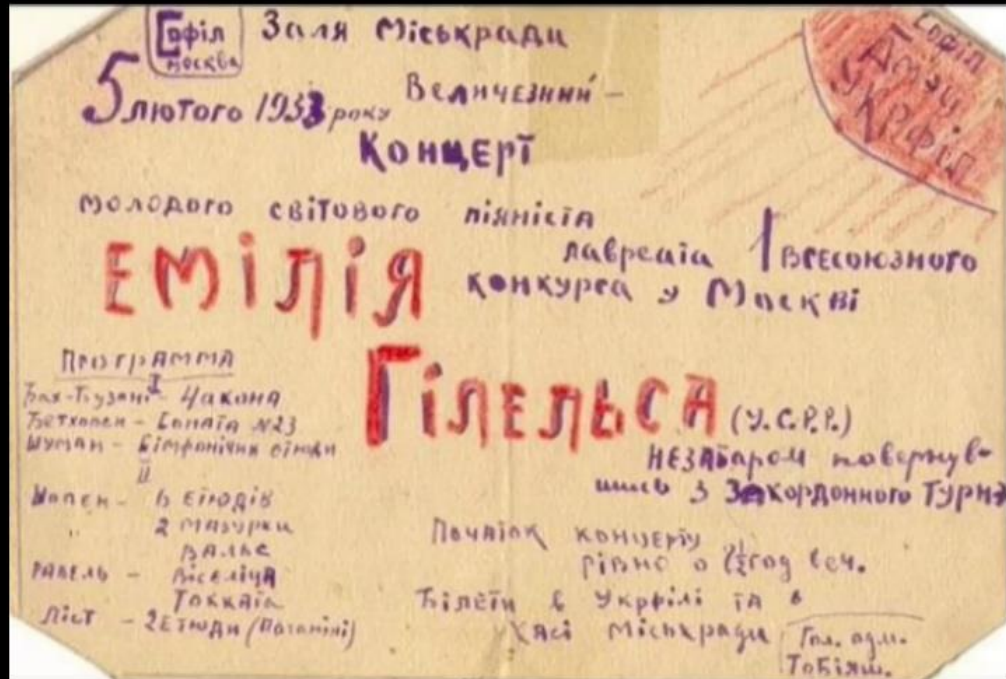 Софіл
москва
Заля Міськради
5 лютого 1933 року
Величезний -
Концерт
Софіл
УКРФІЛ
молодого світового піяніста
лавреата 1 Всесоюзного
конкурса у Москві
ЕМІЛІЯ
ГІЛЕЛЬСА (У.С.Р.Р.)
незабаром повернув-
шись з Закордонного Турнэ
Программа
I
Бах-Бузоні - Чакона
Бетховен - Соната №23
Шуман - Сімфонічни етюди
II
Шопен - 6 Етюдів
2 мазурки
Вальс
Равель - Віселіца
Токката
Ліст - 2 Етюди (Паганіні)
Початок концерту
рівно о год веч.
Білети в Укрфілі та в
касі Міськради
Гол. адм.
Тобіяш.